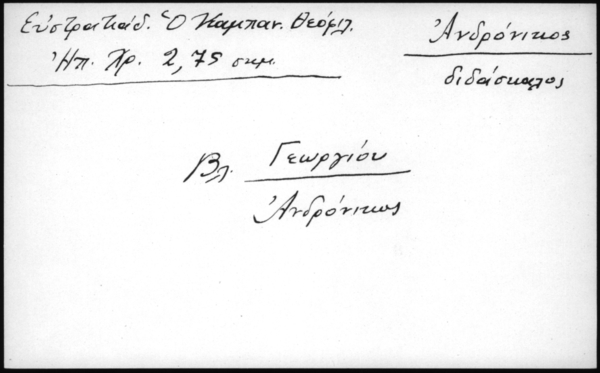 Εὐστρατιάδ. Ὁ Καμπαν. Θεόφιλ.
Ἠπ. Χρ. 2, 75 σημ.
Ἀνδρόνικος
διδάσκαλος
Βλ. Γεωργίου
Ἀνδρόνικος